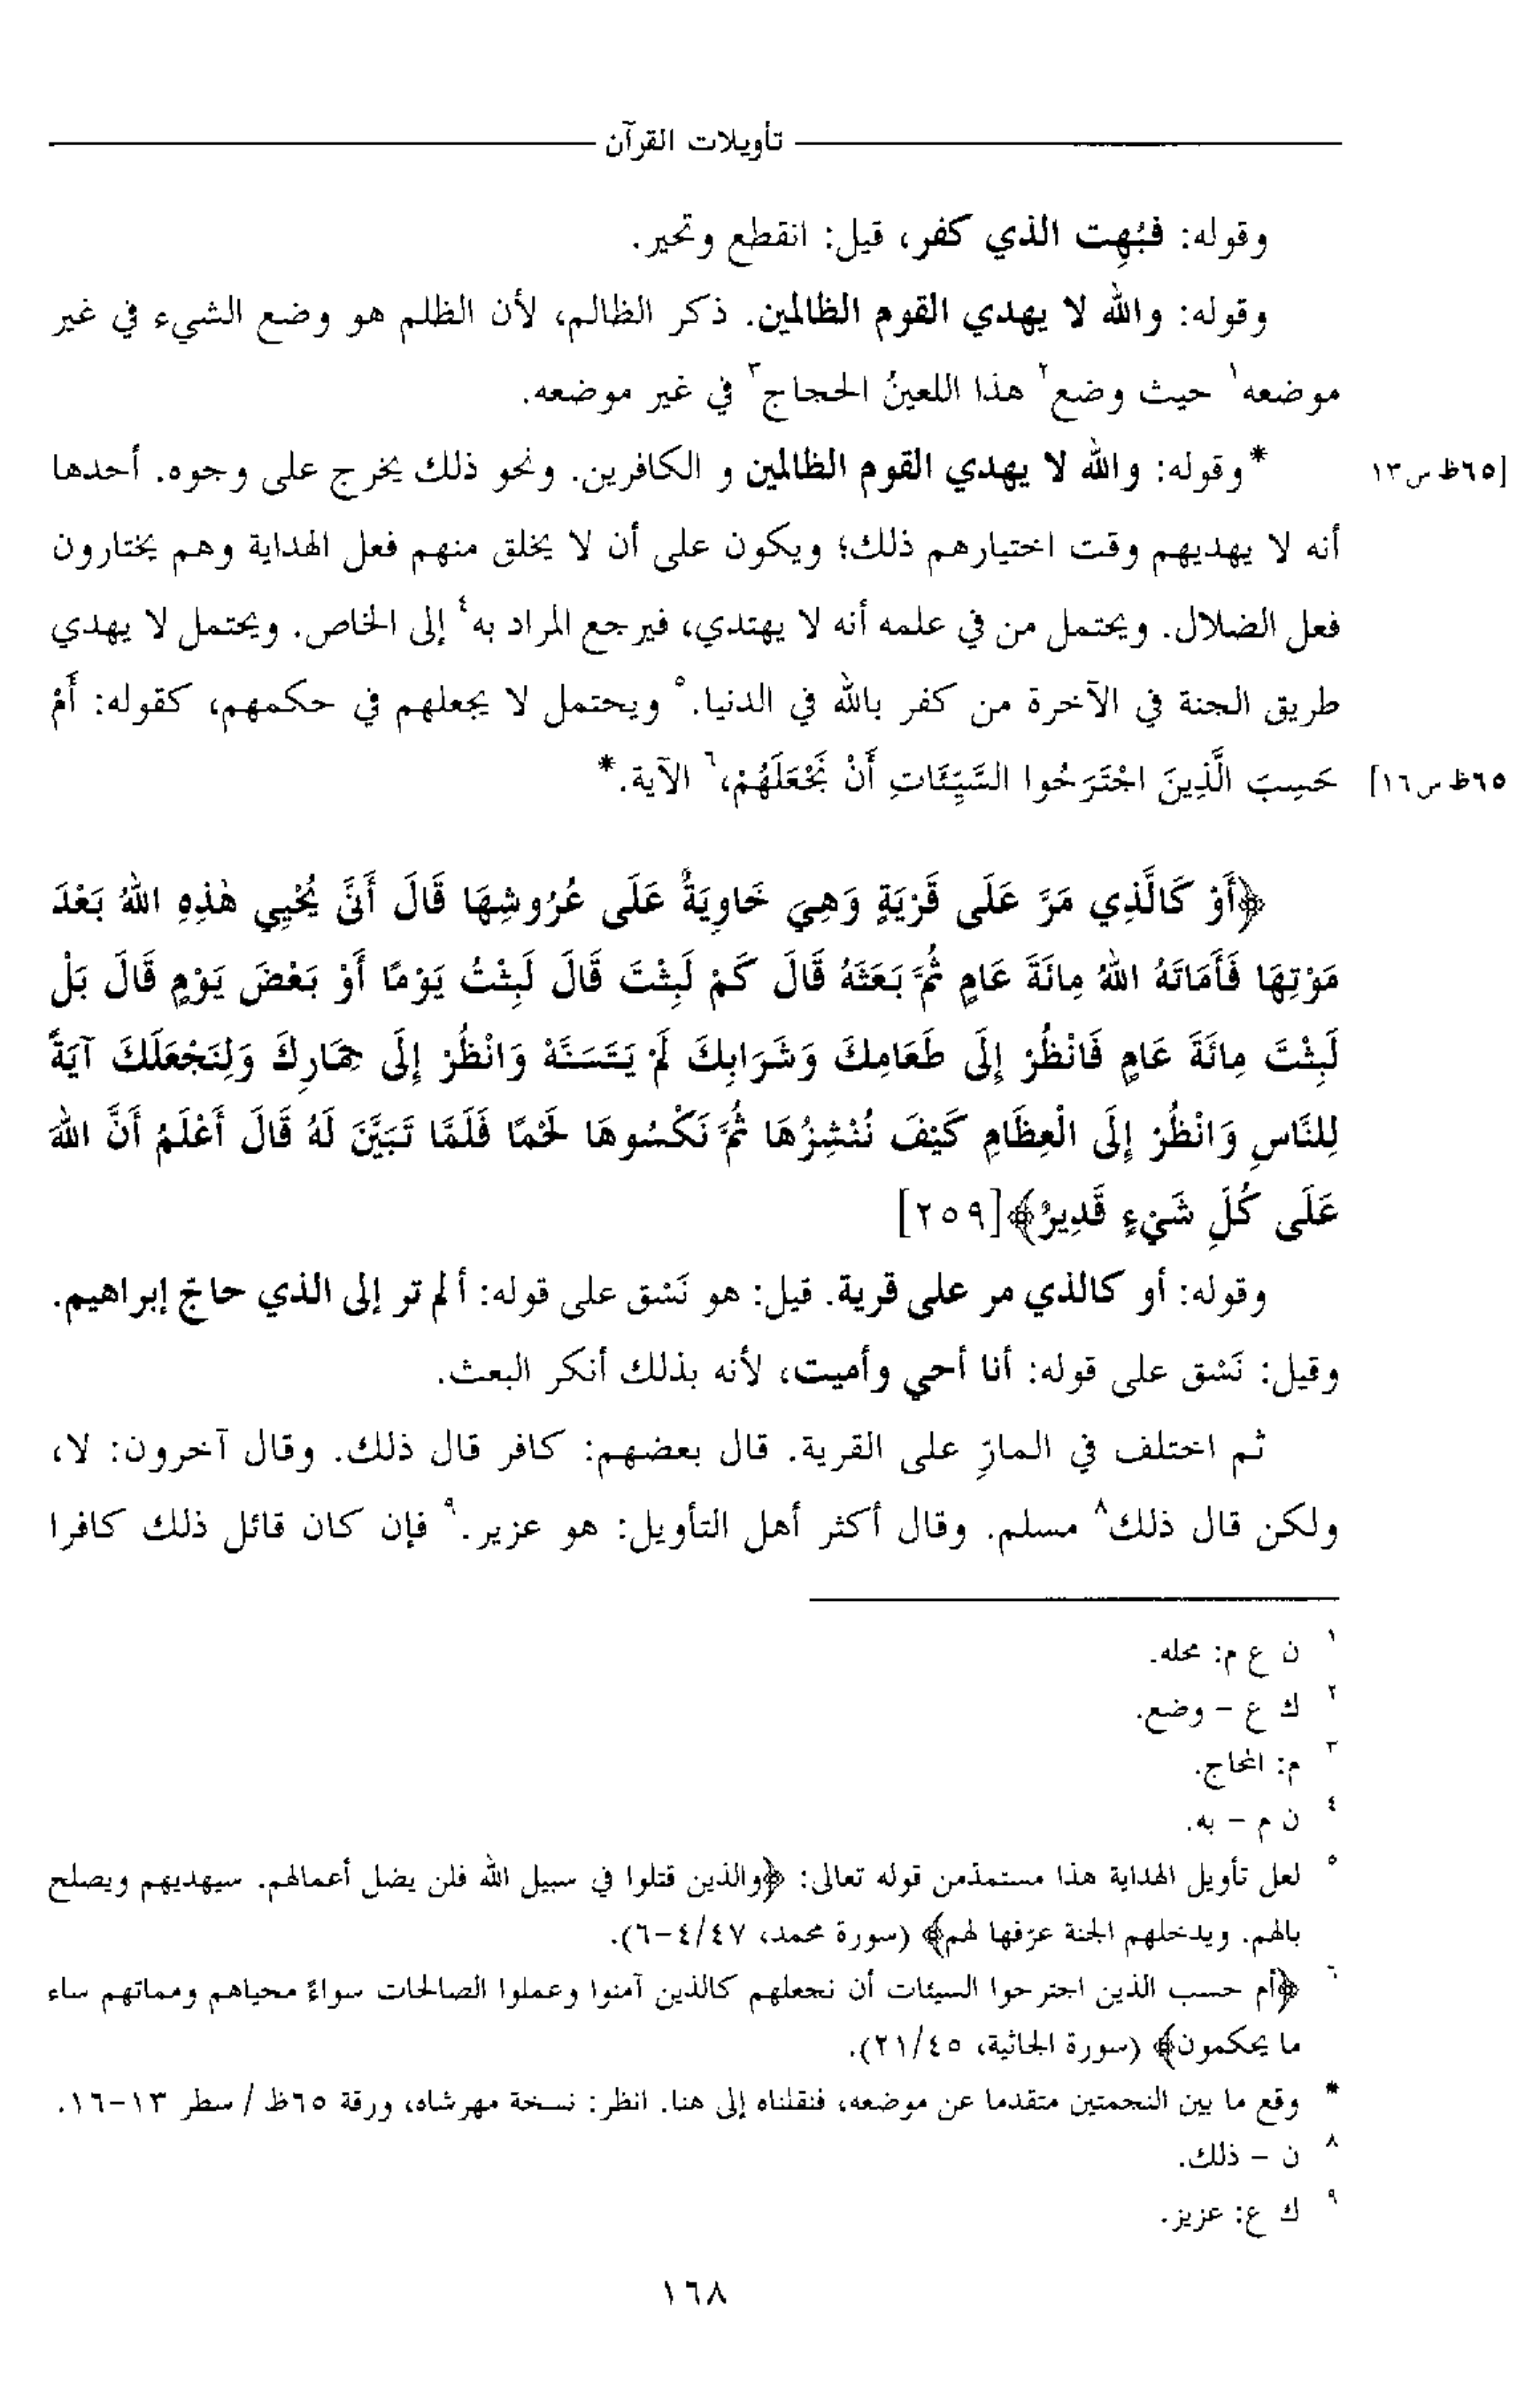 تأويلات القرآن
وقوله: فبُهِت الذي كفر، قيل: انقطع وتحير.
وقوله: والله لا يهدي القوم الظالمين. ذكر الظالم، لأن الظلم هو وضع الشيء في غير
موضعه١ حيث وضع٢ هذا اللعينُ الحجاج٣ في غير موضعه.
[٦٥ظ س١٣ *وقوله: والله لا يهدي القوم الظالمين و الكافرين. ونحو ذلك يخرج على وجوه. أحدها
أنه لا يهديهم وقت اختيارهم ذلك؛ ويكون على أن لا يخلق منهم فعل الهداية وهم يختارون
فعل الضلال. ويحتمل من في علمه أنه لا يهتدي، فيرجع المراد به٤ إلى الخاص. ويحتمل لا يهدي
طريق الجنة في الآخرة من كفر بالله في الدنيا.٥ ويحتمل لا يجعلهم في حكمهم، كقوله: أَمْ
٦٥ظ س١٦] حَسِبَ الَّذِينَ اجْتَرَحُوا السَّيِّئَاتِ أَنْ نَجْعَلَهُمْ،٦ الآية.*
﴿أَوْ كَالَّذِي مَرَّ عَلَى قَرْيَةٍ وَهِيَ خَاوِيَةٌ عَلَى عُرُوشِهَا قَالَ أَنَّى يُحْيِي هٰذِهِ اللهُ بَعْدَ
مَوْتِهَا فَأَمَاتَهُ اللهُ مِائَةَ عَامٍ ثُمَّ بَعَثَهُ قَالَ كَمْ لَبِثْتَ قَالَ لَبِثْتُ يَوْمًا أَوْ بَعْضَ يَوْمٍ قَالَ بَلْ
لَبِثْتَ مِائَةَ عَامٍ فَانْظُرْ إِلَى طَعَامِكَ وَشَرَابِكَ لَمْ يَتَسَنَّهْ وَانْظُرْ إِلَى حِمَارِكَ وَلِنَجْعَلَكَ آيَةً
لِلنَّاسِ وَانْظُرْ إِلَى الْعِظَامِ كَيْفَ نُنْشِزُهَا ثُمَّ نَكْسُوهَا لَحْمًا فَلَمَّا تَبَيَّنَ لَهُ قَالَ أَعْلَمُ أَنَّ اللهَ
عَلَى كُلِّ شَيْءٍ قَدِيرٌ﴾[٢٥٩]
وقوله: أو كالذي مر على قرية. قيل: هو نَسْق على قوله: ألم تر إلى الذي حاجّ إبراهيم.
وقيل: نَسْق على قوله: أنا أحي وأميت، لأنه بذلك أنكر البعث.
ثم اختلف في المارِّ على القرية. قال بعضهم: كافر قال ذلك. وقال آخرون: لا،
ولكن قال ذلك٨ مسلم. وقال أكثر أهل التأويل: هو عزير.٩ فإن كان قائل ذلك كافرا
١ ن ع م: محله.
٢ ك ع – وضع.
٣ م: المحاج.
٤ ن م – به.
٥ لعل تأويل الهداية هذا مستمدذمن قوله تعالى: ﴿والذين قتلوا في سبيل الله فلن يضل أعمالهم. سيهديهم ويصلح
بالهم. ويدخلهم الجنة عرّفها لهم﴾ (سورة محمد، ٤٧/٤-٦).
٦ ﴿أم حسب الذين اجترحوا السيئات أن نجعلهم كالذين آمنوا وعملوا الصالحات سواءً محياهم ومماتهم ساء
ما يحكمون﴾ (سورة الجاثية، ٤٥/٢١).
* وقع ما بين النجمتين متقدما عن موضعه، فنقلناه إلى هنا. انظر: نسخة مهرشاه، ورقة ٦٥ظ / سطر ١٣-١٦.
٨ ن – ذلك.
٩ ك ع: عزيز.
١٦٨